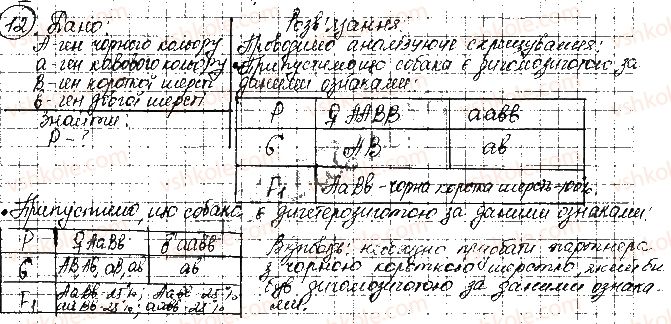 12 Дано:
А-ген чорного кольору
а-ген кавового кольору
В-ген короткої шерсті
в-ген довгої шерсті
Знайти:
Р-?
Розв'язання:
Проводимо аналізуюче схрещування:
• Припустимо, що собака є дигомозиготою за
даними ознаками:
Р ♀ ААВВ аавв
G АВ ав
F₁ АаВв - чорна коротка шерсть -100%.
• Припустимо, що собака є дигетерозиготою за даними ознаками:
Р ♀ АаВв ♂ аавв
G АВ, Ав, аВ, ав ав
F₁ АаВв-25%; Аавв-25%;
ааВв-25%; аавв-25%
Висновок: необхідно придбати партнера
з чорною короткою шерстю, який би
був дигомозиготою за даними ознака-
ми.